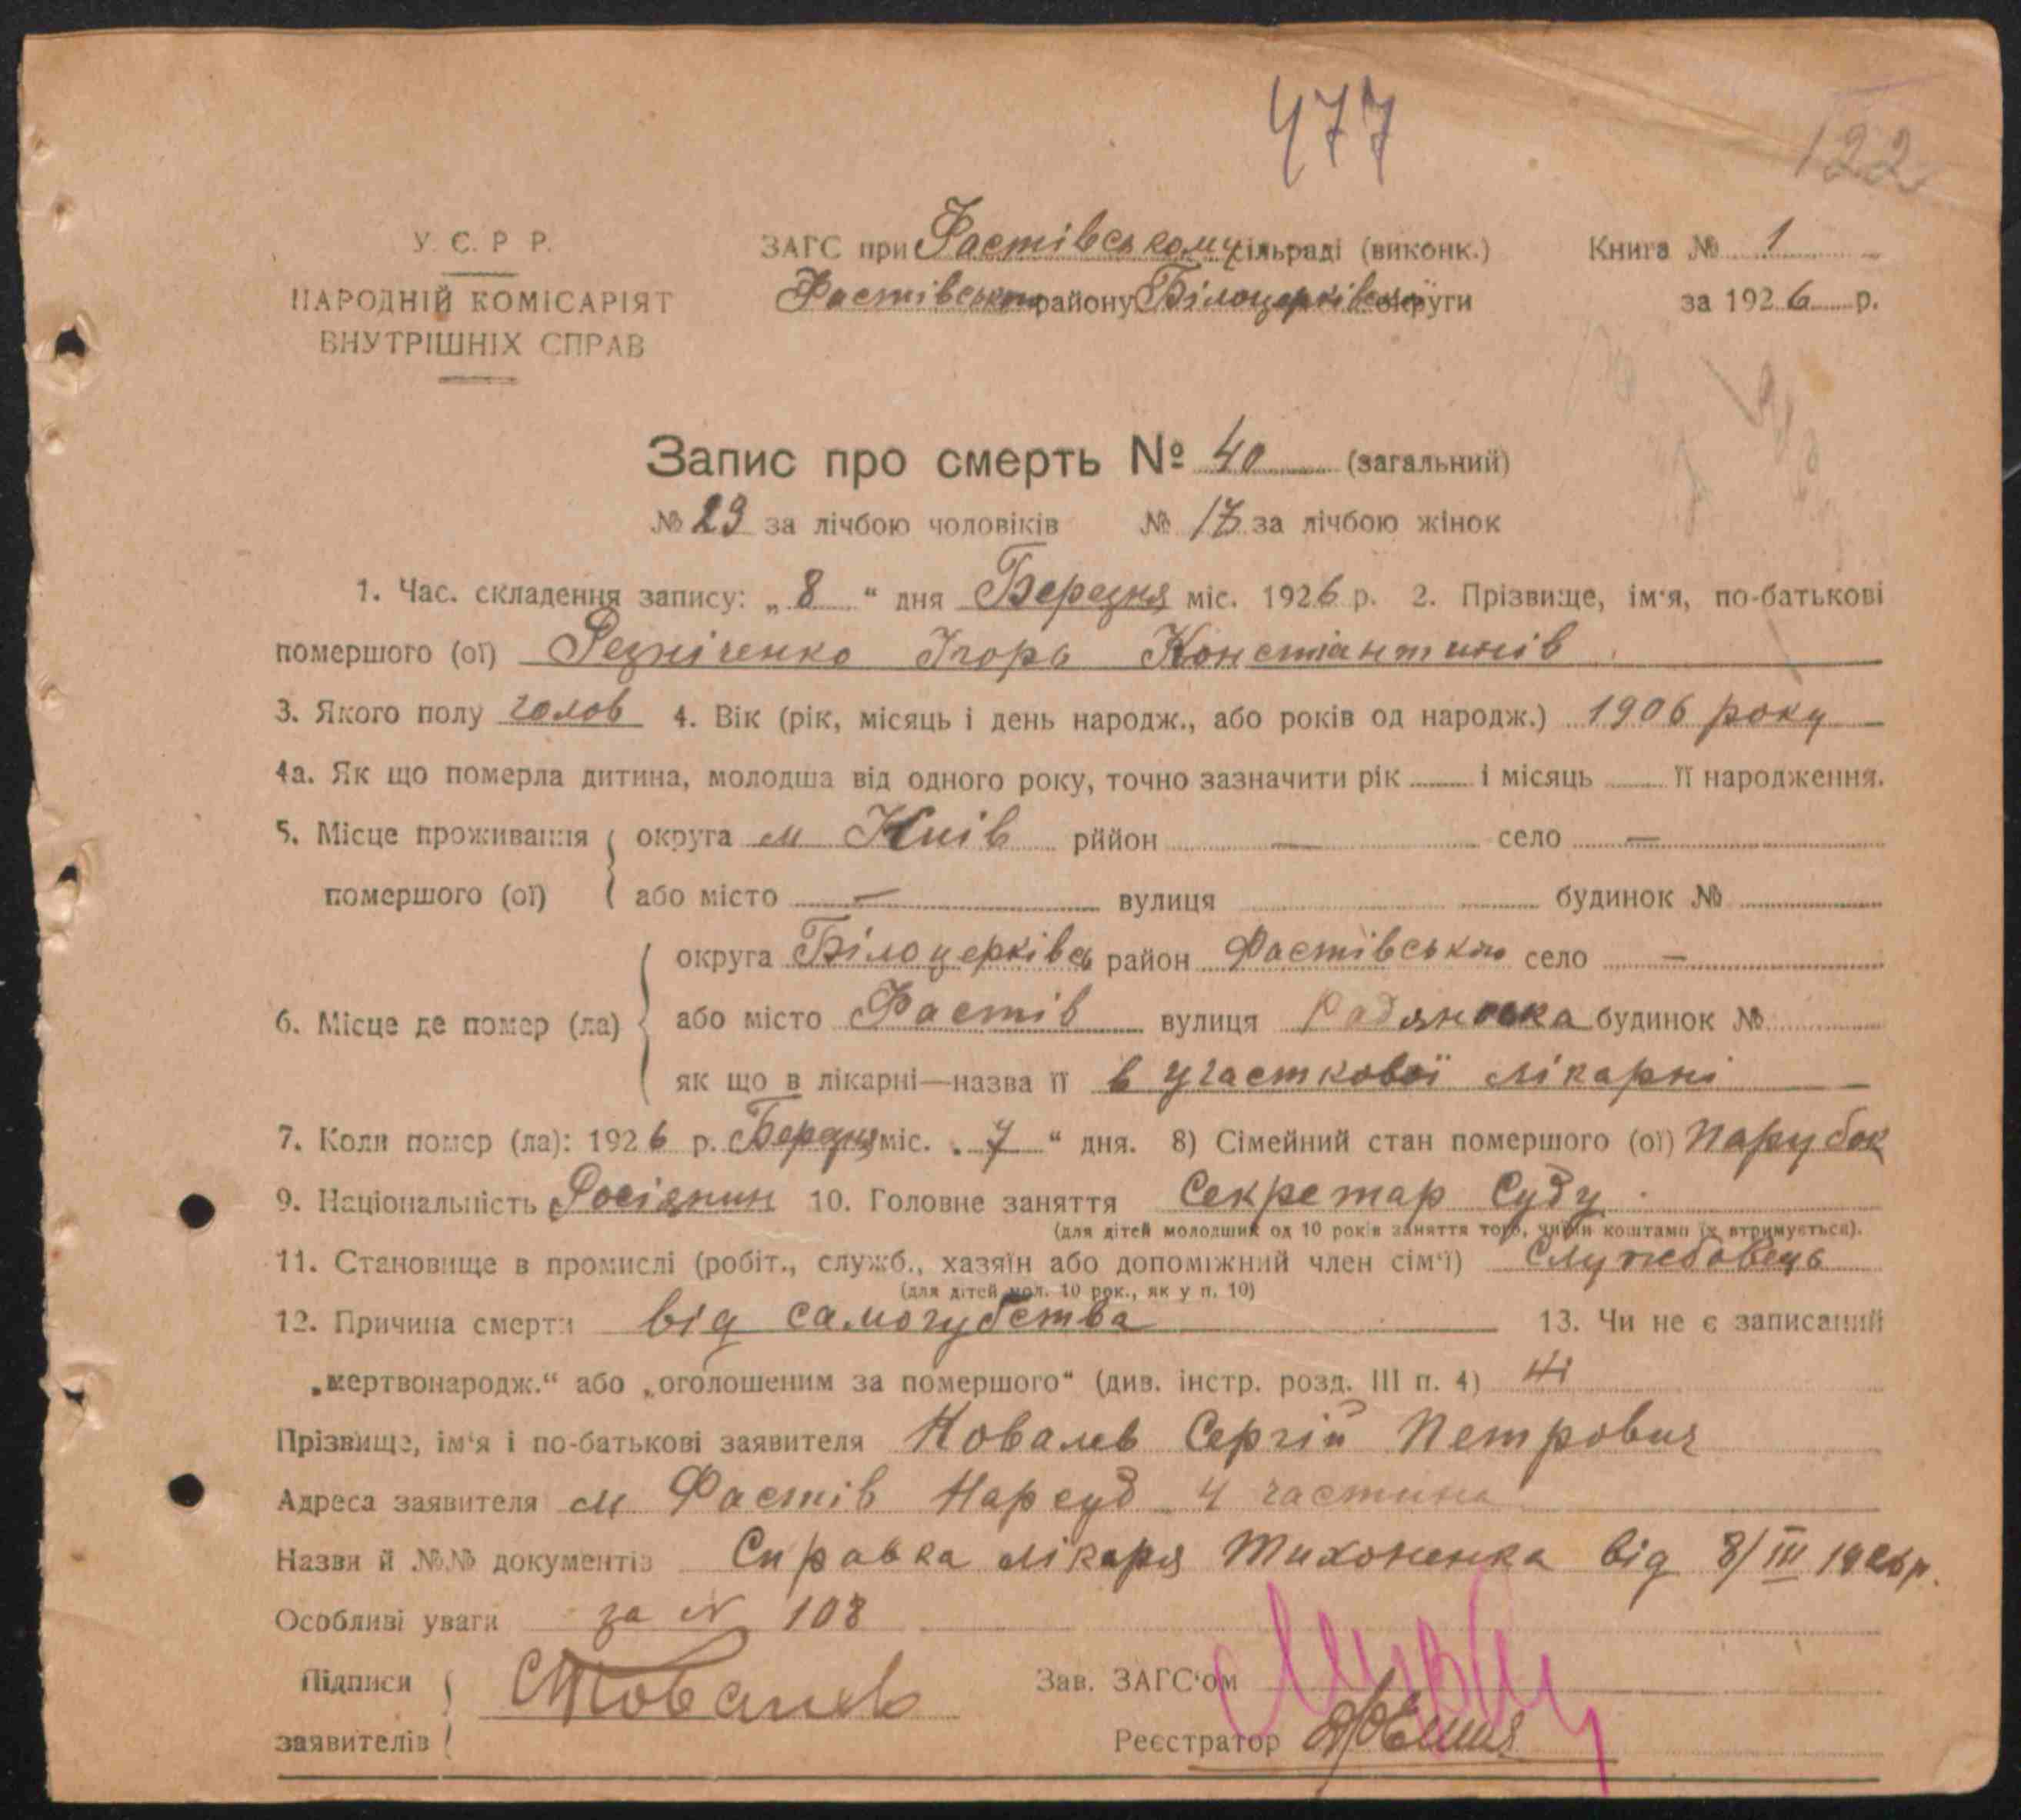 477
122
У. С. Р. Р.
НАРОДНІЙ КОМІСАРІЯТ
ВНУТРІШНІХ СПРАВ
ЗАГС при Фастівському сільраді (виконк.)
Фастівського району Білоцерківської округи
Книга № 1
за 1926 р.
Запис про смерть № 40 (загальний)
№ 23 за лічбою чоловіків № 17 за лічбою жінок
1. Час. складення запису: „ 8 “ дня Березня міс. 1926 р. 2. Прізвище, ім‘я, по-батькові
помершого (ої) Резніченко Ігорь Констіантинів
3. Якого полу чолов 4. Вік (рік, місяць і день народж., або років од народж.) 1906 року
4а. Як що померла дитина, молодша від одного року, точно зазначити рік і місяць її народження.
5. Місце проживання округа м Київ рййон — село —
помершого (ої) або місто — вулиця будинок №
округа Білоцерківсь район Фастівського село —
6. Місце де помер (ла) або місто Фастів вулиця Радянська будинок №
як що в лікарні—назва її в участкової лікарні
7. Коли помер (ла): 1926 р. Березня міс. „ 7 “ дня. 8) Сімейний стан помершого (ої) парубок
9. Національність Росіянин 10. Головне заняття Секретар Суду
(для дітей молодших од 10 років заняття того, чиїми коштами їх втримується).
11. Становище в промислі (робіт., служб., хазяїн або допоміжний член сім‘ї) Служебовець
(для дітей мол. 10 рок., як у п. 10)
12. Причина смерти від самогубства 13. Чи не є записаний
„мертвонародж.“ або „оголошеним за помершого“ (див. інстр. розд. III п. 4) Ні
Прізвище, ім‘я і по-батькові заявителя Ковалев Сергій Петрович
Адреса заявителя м Фастів Нарсуд 4 частина
Назви й №№ документів Справка лікаря Тихоненка від 8/III 1926 р.
Особливі уваги за № 108
Підписи
заявителів
Зав. ЗАГС‘ом
Реєстратор